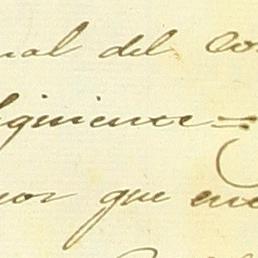 nal del Co
siguiente =
nor que en